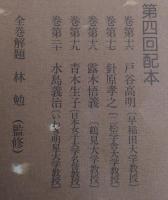 第四回配本
巻第十六　戸谷高明〔早稲田大学教授〕
巻第十七　針原孝之〔二松学舎大学教授〕
巻第十八　露木悟義〔鶴見大学教授〕
巻第十九　青木生子〔日本女子大学名誉教授〕
巻第二十　水島義治〔いわき明星大学教授〕
全巻解題　林　勉（監修）